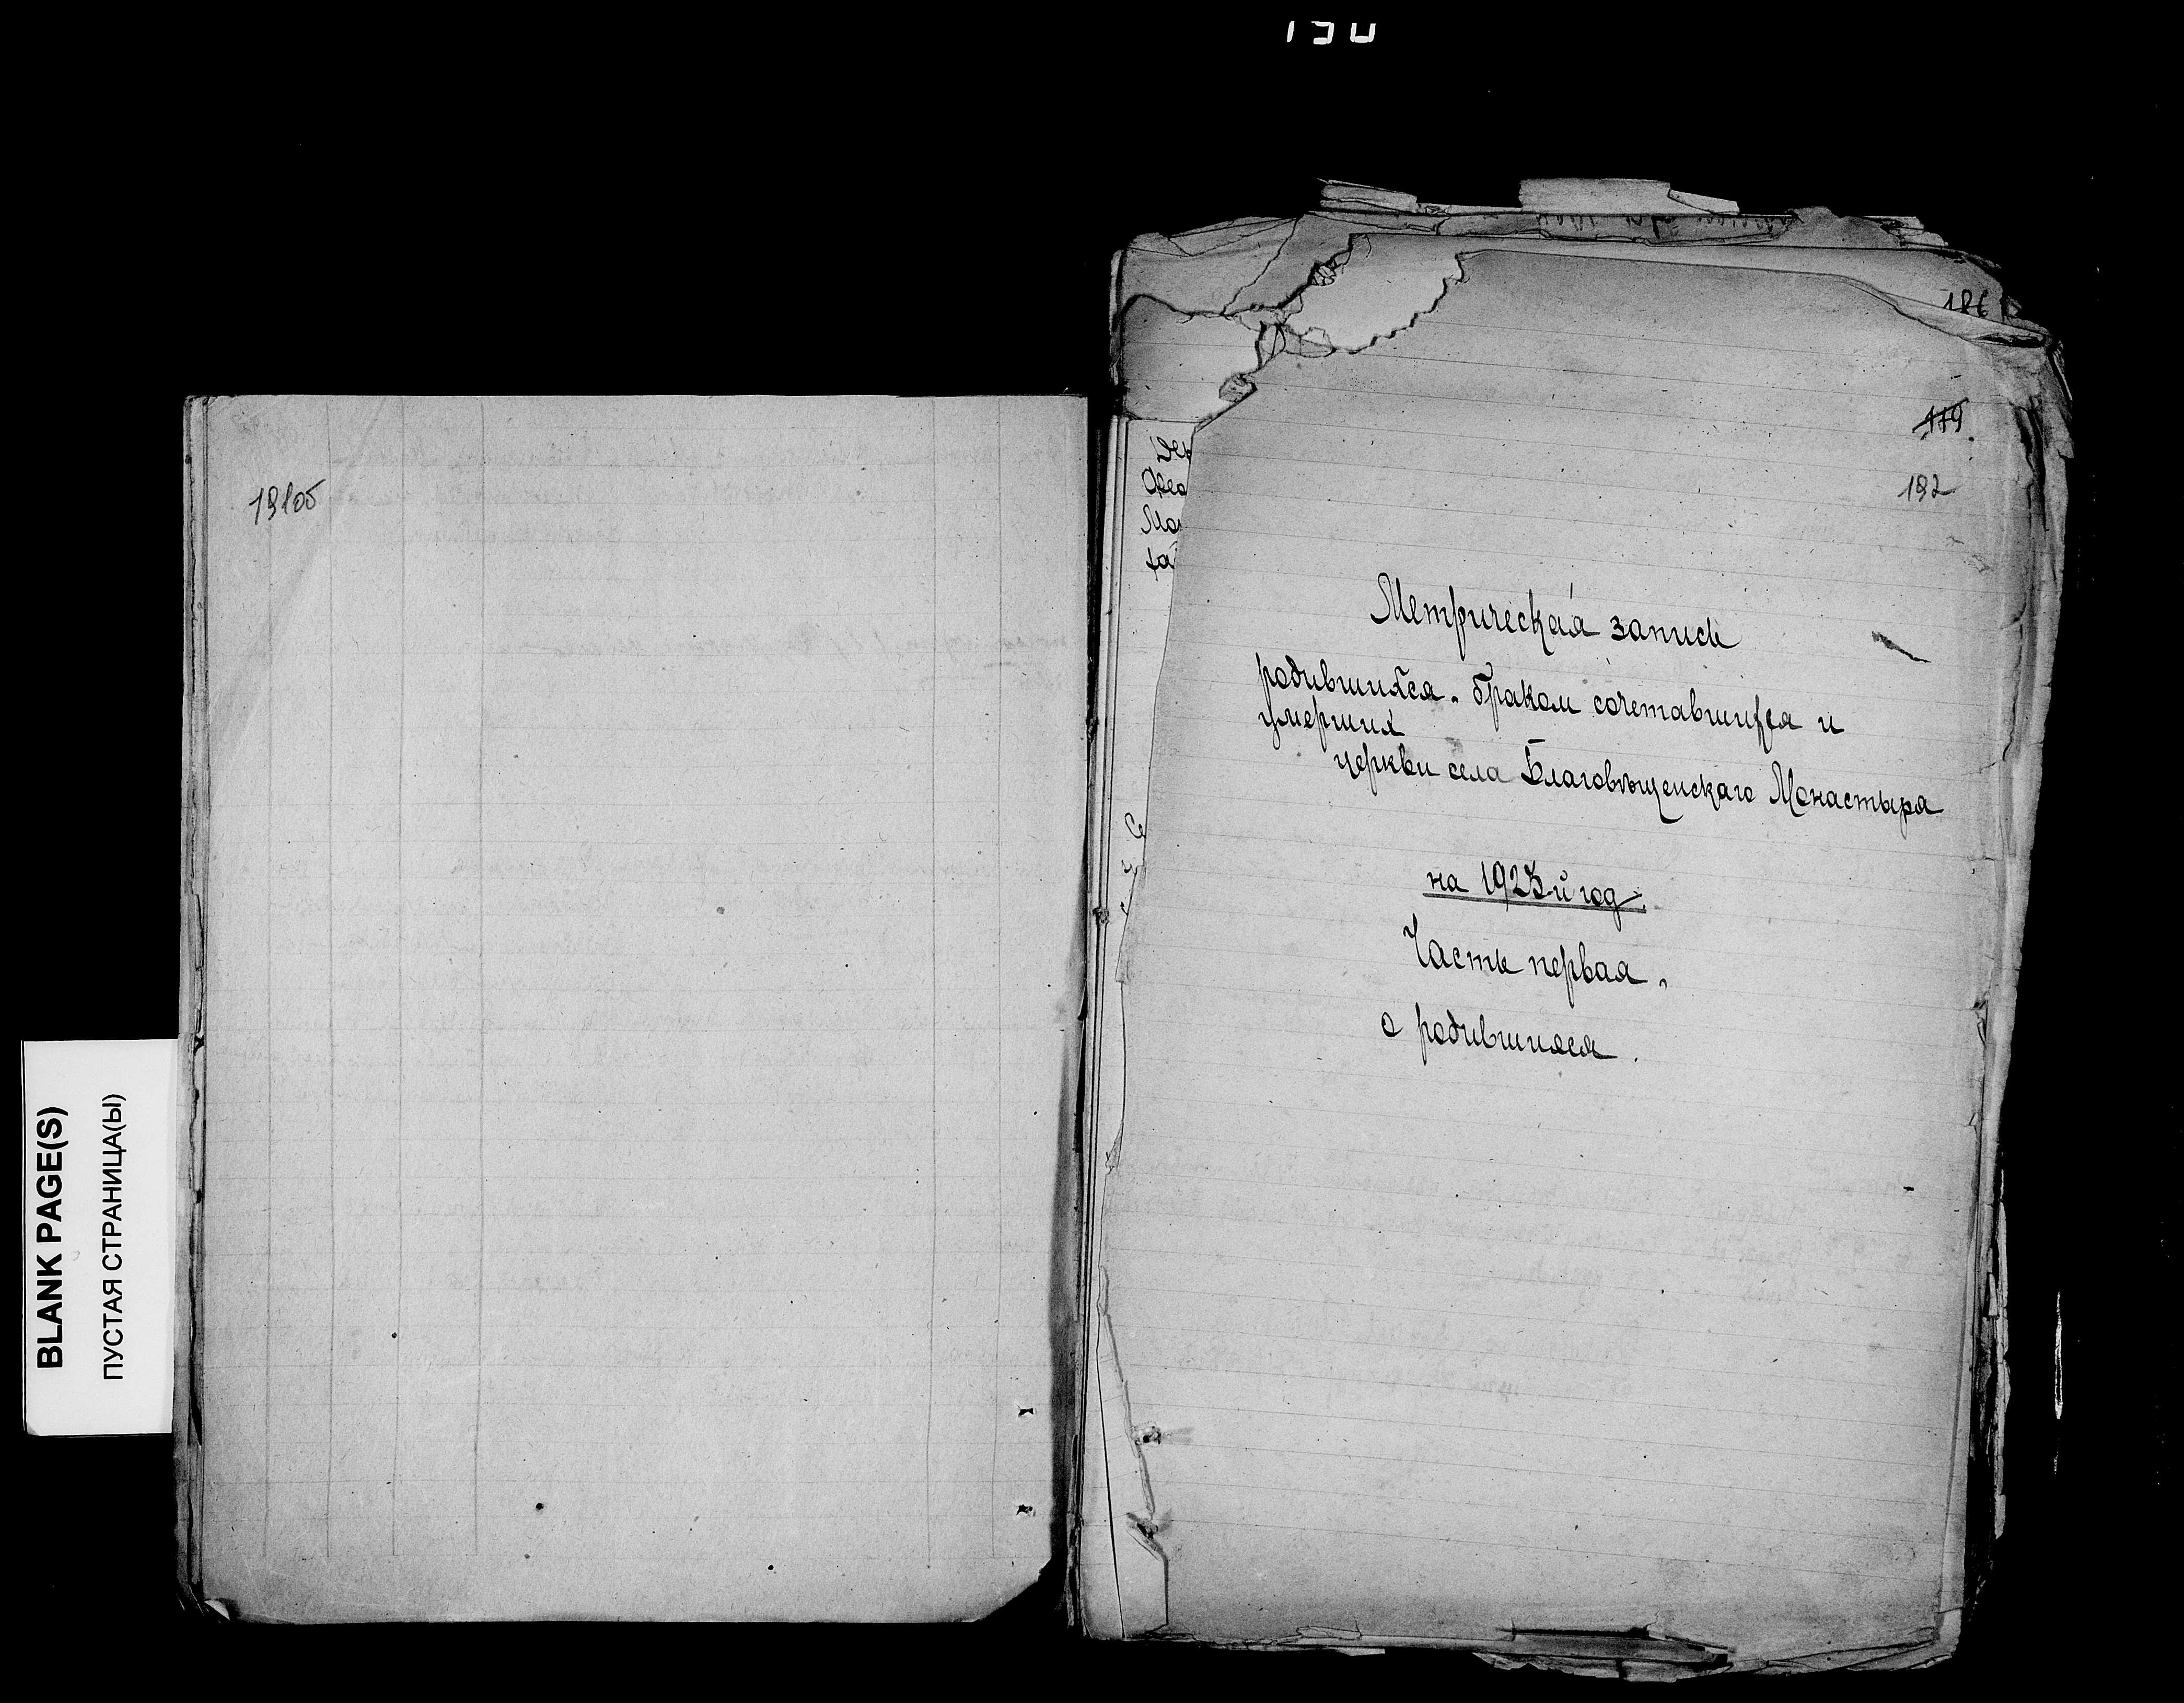 BLANK PAGE(S)
ПУСТАЯ СТРАНИЦА(Ы)
191об
186
179
192
Метрическая запись
родившихся. браком сочетавшихся и
умерших
церкви села Благовѣщенскаго Монастыря
на 1923-й год.
Часть первая.
о родившихся.